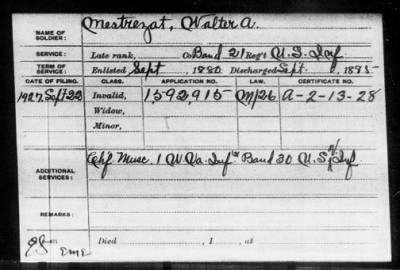 NAME OF SOLDIER: Mestrezat, Walter A.
SERVICE: Late rank, Co Band 21 Reg't U.S. Inf
TERM OF SERVICE: Enlisted Sept , 1880 Discharged Sept , 1885
DATE OF FILING. CLASS. APPLICATION NO. LAW. CERTIFICATE NO.
1927 Sept 22 Invalid, 1592915 A-2-13-28
Widow,
Minor,
ADDITIONAL SERVICES: Chf Musc. 1 W. Va. Inf Band 30 U.S. Inf.
REMARKS:
Died , 1 , at
EME